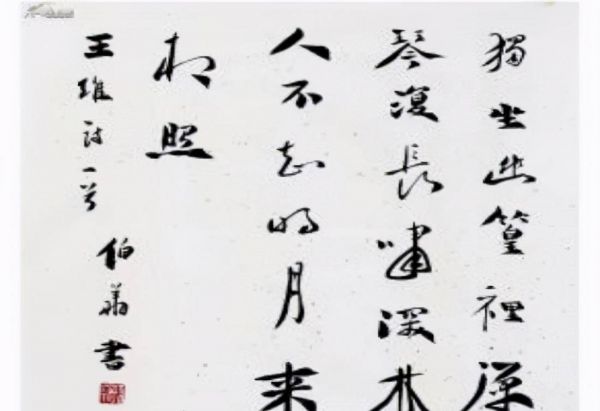 獨坐幽篁裡彈
琴復長嘯深林
人不知明月来
相照
王維詩一首
伯翁書